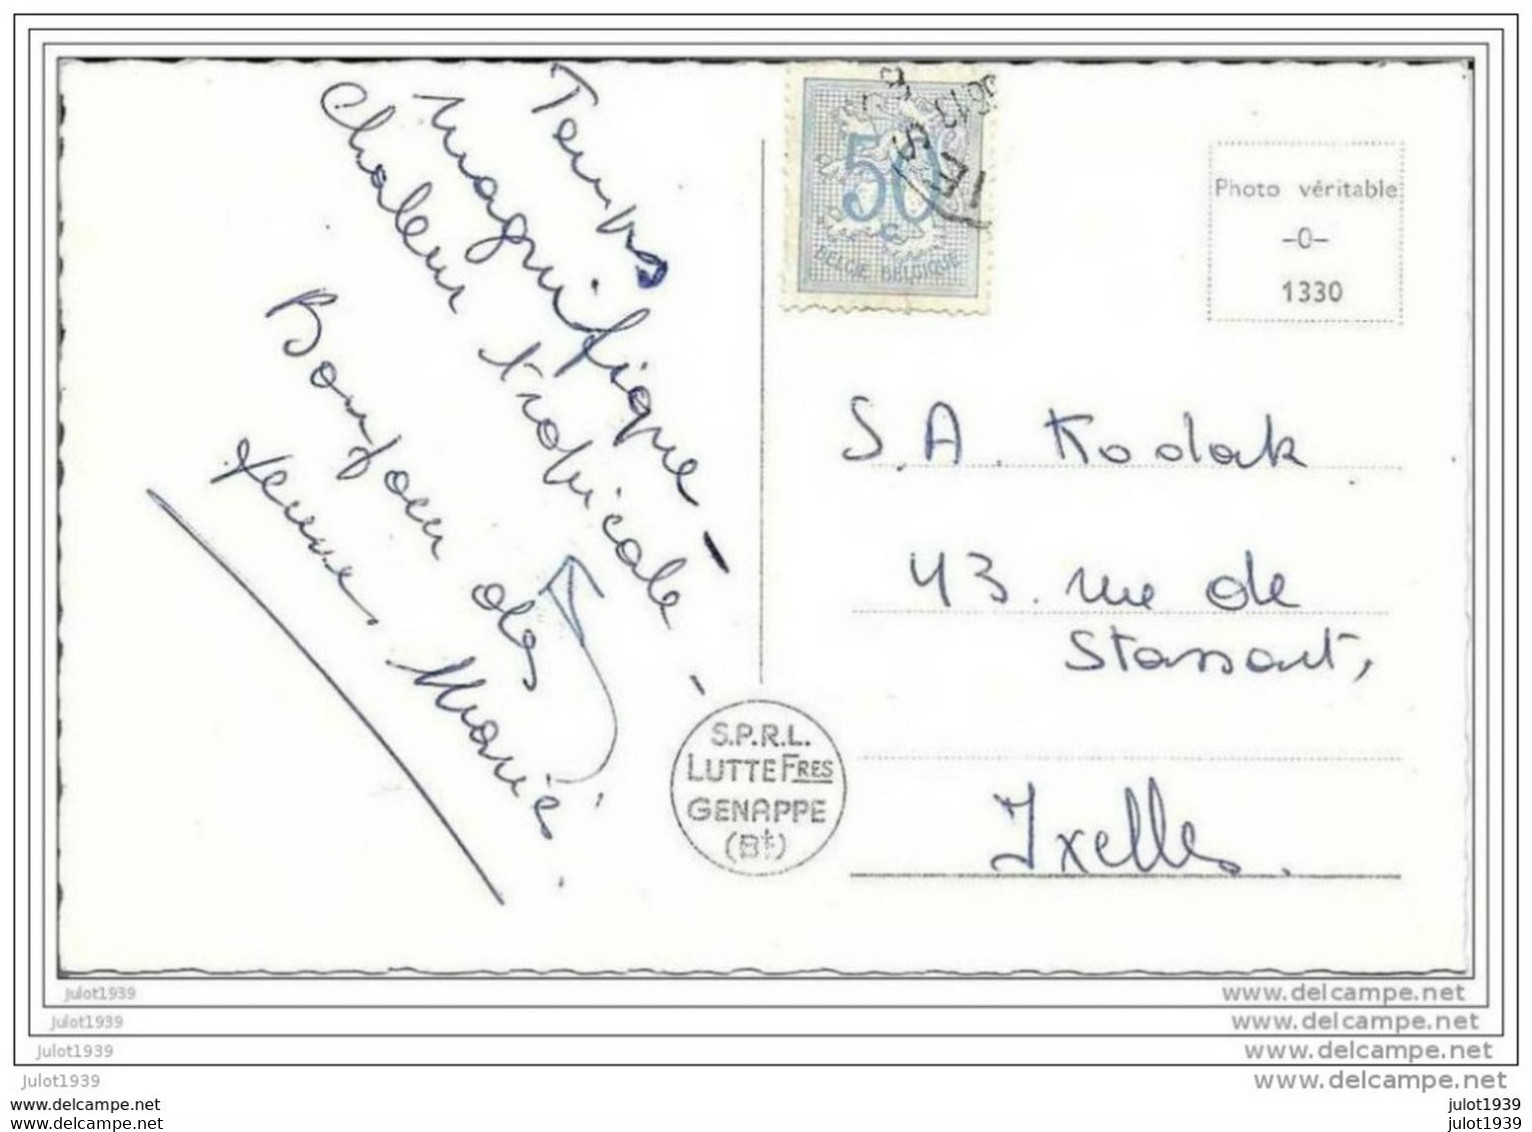 Temps
magnifique -
Chaleur tropicale -
Bonjour des
jeunes Mariés.
50
c
BELGIE BELGIQUE
Photo véritable
-0-
1330
S.A. Kodak
43. rue de
Stassart,
Ixelles.
S.P.R.L.
LUTTE FRES
GENAPPE
(Bt)
julot1939
www.delcampe.net
julot1939
www.delcampe.net
julot1939
www.delcampe.net
julot1939
www.delcampe.net
www.delcampe.net
julot1939
www.delcampe.net
julot1939